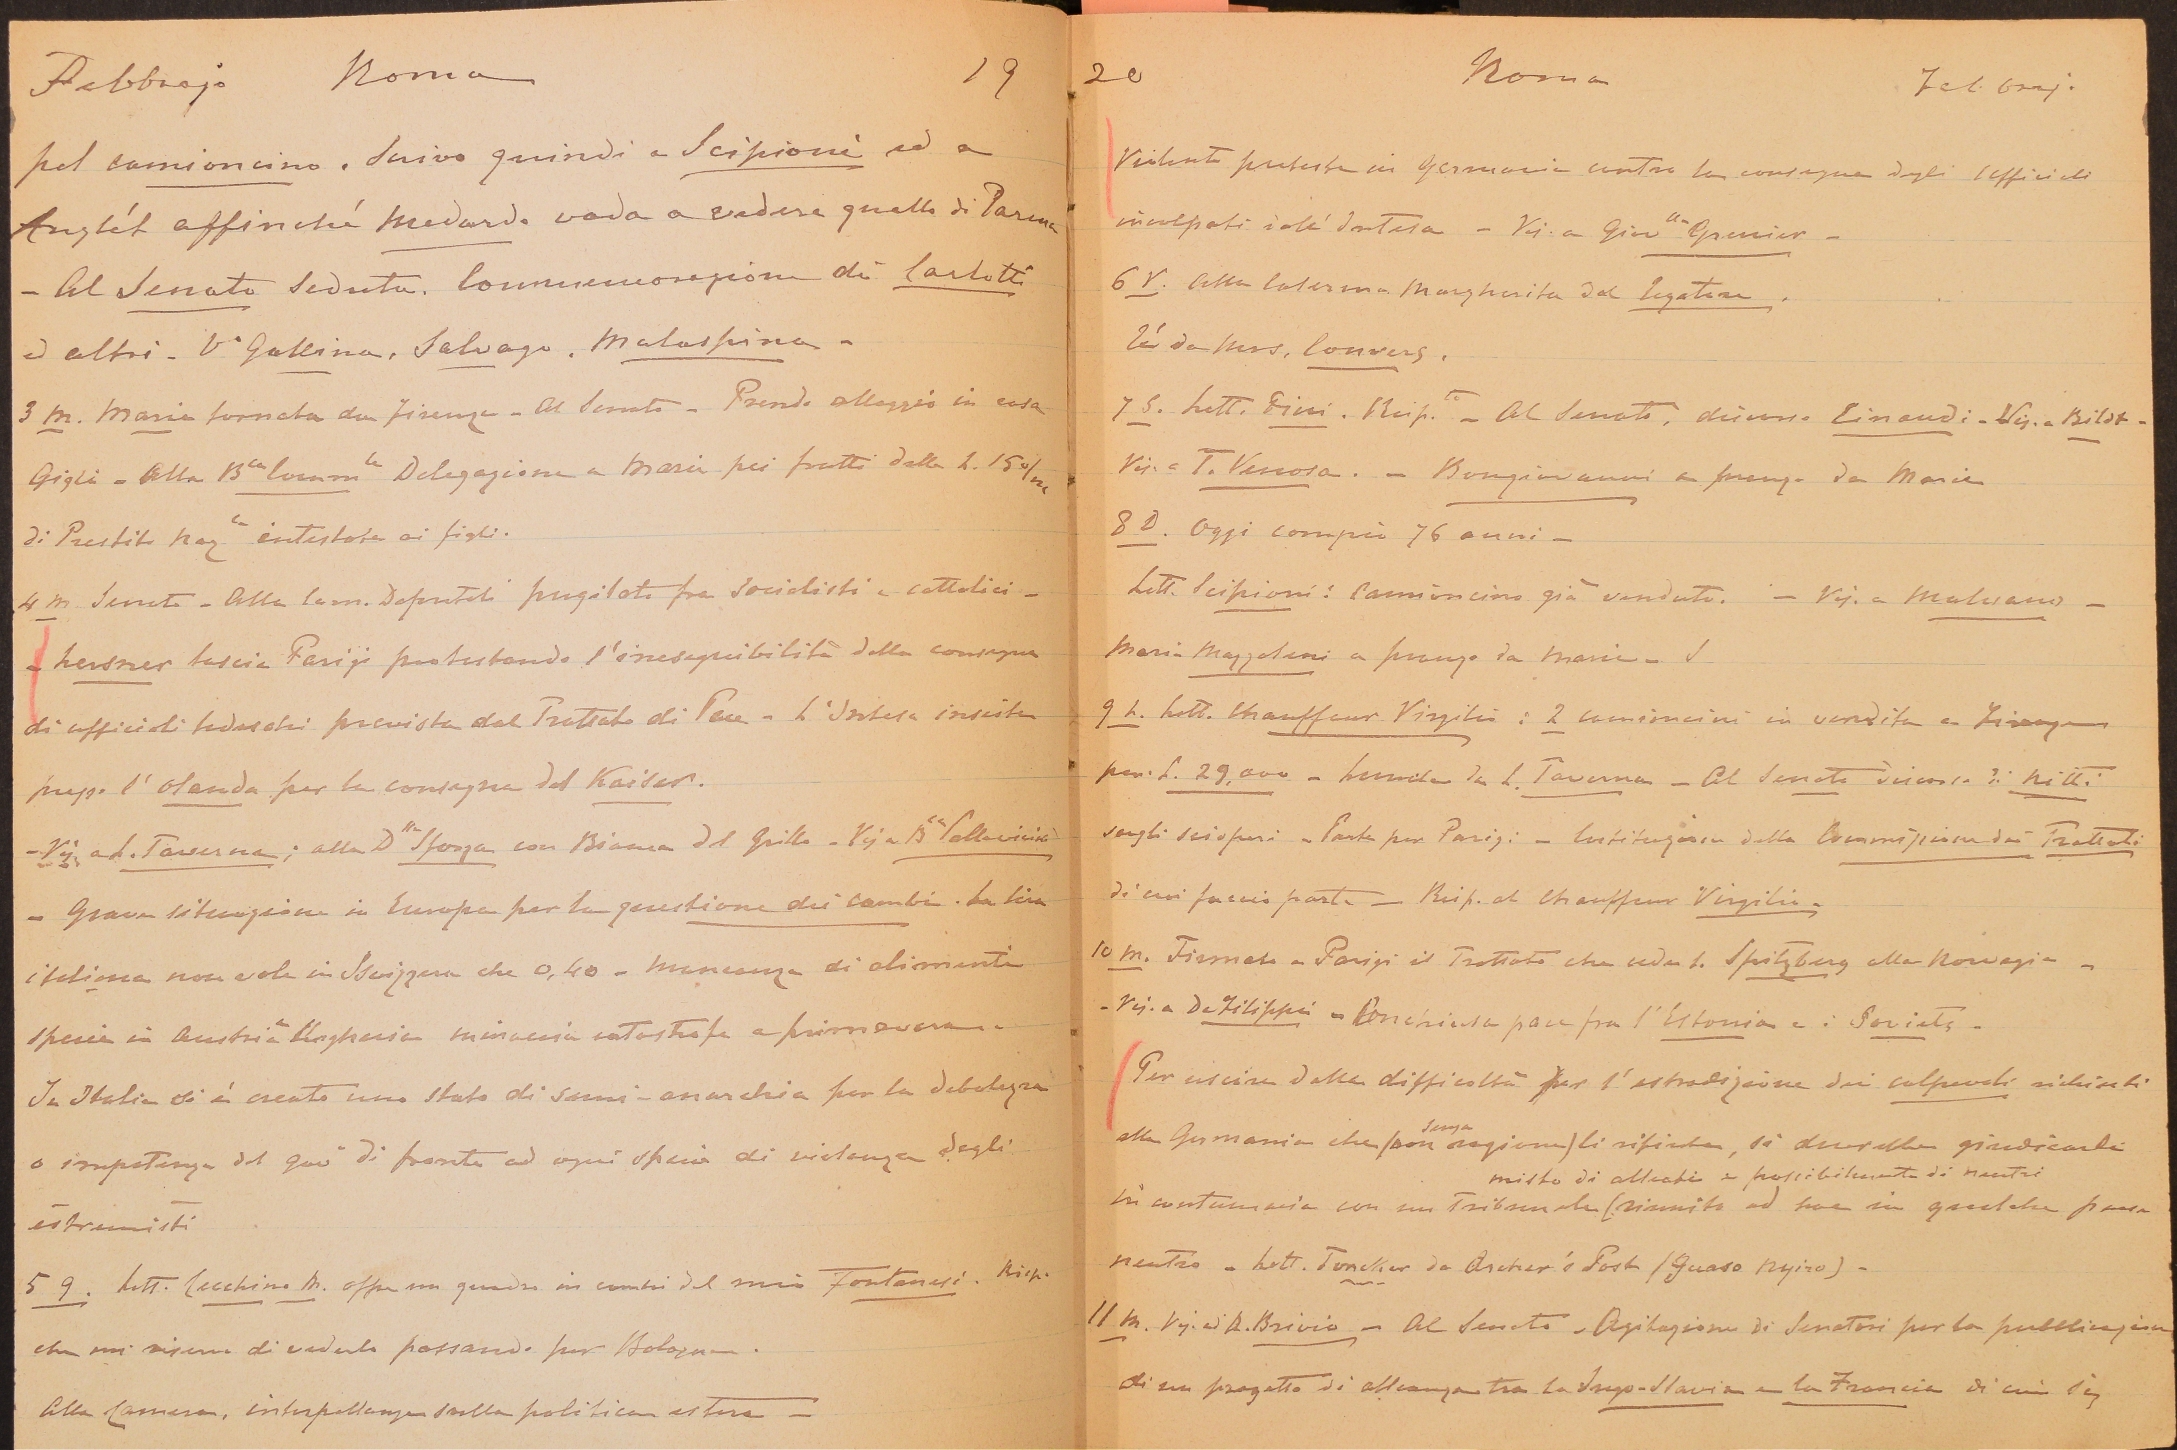 Febbrajo Roma 19
pel camioncino. Scrivo quindi a Scipioni ed a
Anglét affinché Medardo vada a vedere quello di Parma
- Al Senato seduta. Commemorazione di Carlotti
ed altri - V° Gallina, Salvago, Malaspina -
3 M. Maria tornata da Firenze - Al Senato - Prendo alloggio in casa
Gigli - Alla Bca Comm le Delegazione a Maria pei frutti delle L. 150/m
di Prestito Naz le intestate ai figli.
4 M Senato - Alla Cam. Deputati pugilato fra socialisti e cattolici -
- Lersner lascia Parigi protestando l'ineseguibilità della consegna
di ufficiali tedeschi prevista dal Trattato di Pace - L'Intesa insiste
presso l'Olanda per la consegna del Kaiser.
- Vis. a L. Taverna; alla D lla Sforza con Bianca del Grillo - Vis a B ssa Pallavicini
- Grave situazione in Europa per la questione dei cambi. La lira
italiana non vale in Isvizzera che 0,40 - Mancanza di alimenti
specie in Austria Ungheria minaccia catastrofe a primavera -
In Italia si è creato uno stato di semi-anarchia per la debolezza
o impotenza del gov° di fronte ad ogni specie di violenza degli
estremisti
5 G. Lett. Cecchino M. offre un quadro in cambio del mio Fontanesi. Risp.
che mi riservo di vederlo passando per Bologna.
Alla Camera, interpellanze sulla politica estera -
20 Roma Febbraj.
Violente proteste in Germania contro la consegna degli ufficiali
incolpati dall'Intesa - Vis. a Giov lla Grenier -
6 V. Alla Caserma Margherita dal legatore.
Té da Mrs. Convers.
7 S. Lett. Fini. Risp. to - Al Senato, discorso Einaudi - Vis. a Bildt -
Vis. a T. Venosa. - Bongiovanni a pranzo da Maria
8 D. Oggi compio 76 anni -
Lett. Scipioni: Camioncino già venduto. - Vis. a Malvano -
Maria Mazzoleni a pranzo da Maria -
9 L. Lett. Chauffeur Virgilio: 2 camioncini in vendita a Firenze
per L. 29,000 - Lunch da L. Taverna - Al Senato discorso di Nitti
sugli scioperi - Parte per Parigi - Costituzione della Commissione dei Trattati
di cui faccio parte - Risp. al Chauffeur Virgilio -
10 M. Firmato a Parigi il Trattato che cede lo Spitzberg alla Norvegia -
- Vis. a De Filippi - Conchiusa pace fra l'Estonia e i Soviets -
Per uscire dalla difficoltà per l'estradizione dei colpevoli richiesti
senza
alla Germania che (con ragione) li rifiuta, si dovrebbe giudicarli
misto di alleati e possibilmente di neutri
in contumacia con un Tribunale (riunito ad hoc in qualche paese
neutro - Lett. Toncker da Archer's Post (Guaso Nyiro) -
11 M. Vis. ad A. Brivio - Al Senato - Agitazione di Senatori per la pubblicazione
di un progetto di alleanza tra la Jugo-Slavia e la Francia di cui